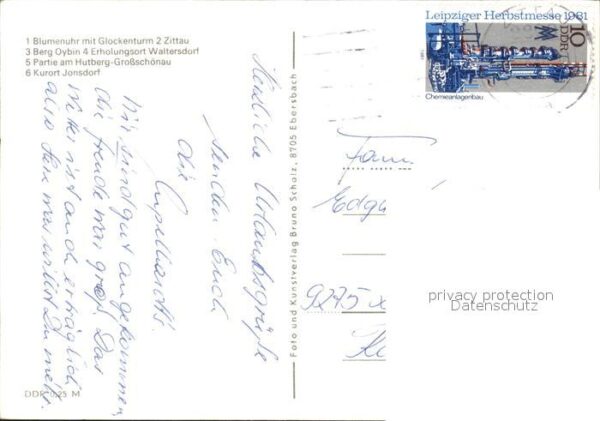 1 Blumenuhr mit Glockenturm 2 Zittau
3 Berg Oybin 4 Erholungsort Waltersdorf
5 Partie am Hutberg-Großschönau
6 Kurort Jonsdorf
Herzliche Urlaubsgrüße
senden Euch
die
Wir sind gut angekommen,
die Freude war groß. Das
Wetter ist auch erträglich
also Herz was willst Du mehr.
DDR 0,25 M
Foto und Kunstverlag Bruno Scholz, 8705 Ebersbach
Leipziger Herbstmesse 1981
10
DDR
Chemieanlagenbau
Fam.
Edga
9275
privacy protection
Datenschutz